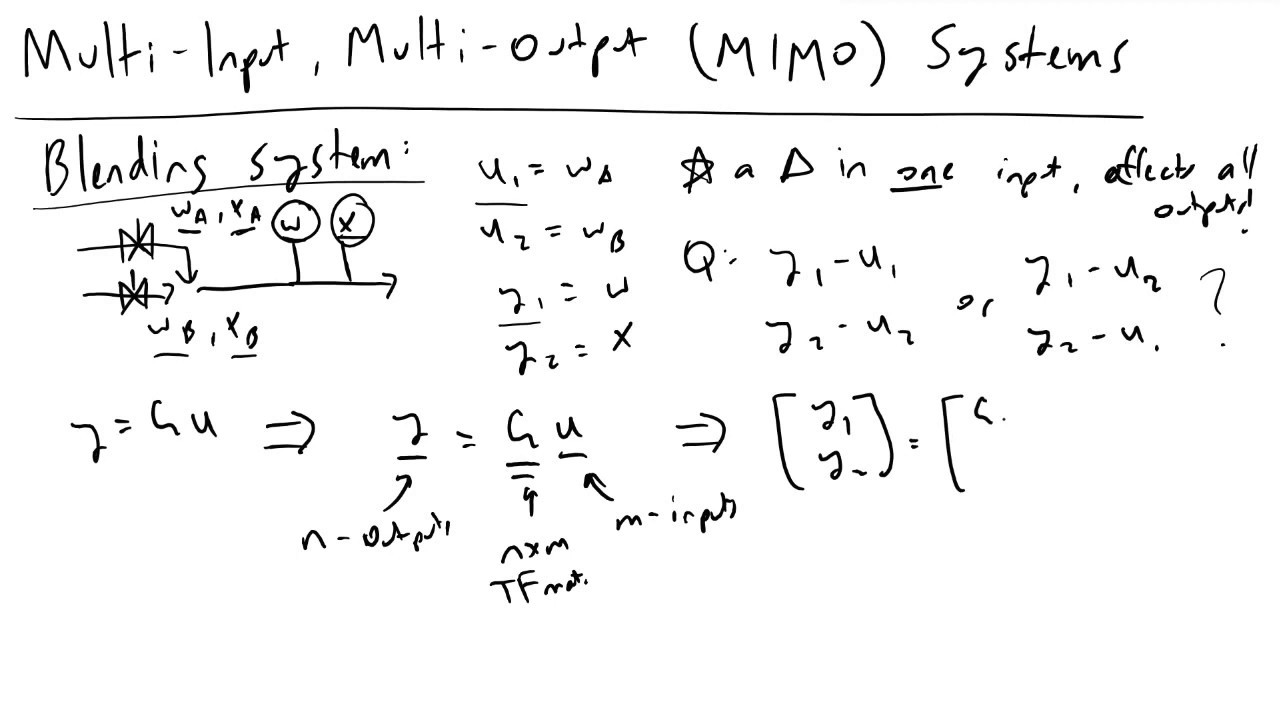 Multi-Input, Multi-Output (MIMO) Systems
Blending system:
w_A, x_A
w
x
w_B, x_B
u_1 = w_A
u_2 = w_B
y_1 = w
y_2 = x
☆ a Δ in one input, affects all
outputs!
Q: y_1 - u_1 or y_1 - u_2 ?
y_2 - u_2 y_2 - u_1
y = Gu ⇒ y = G u ⇒ [y_1 y_2] = [G
n-outputs
m-inputs
n×m
TF mat.